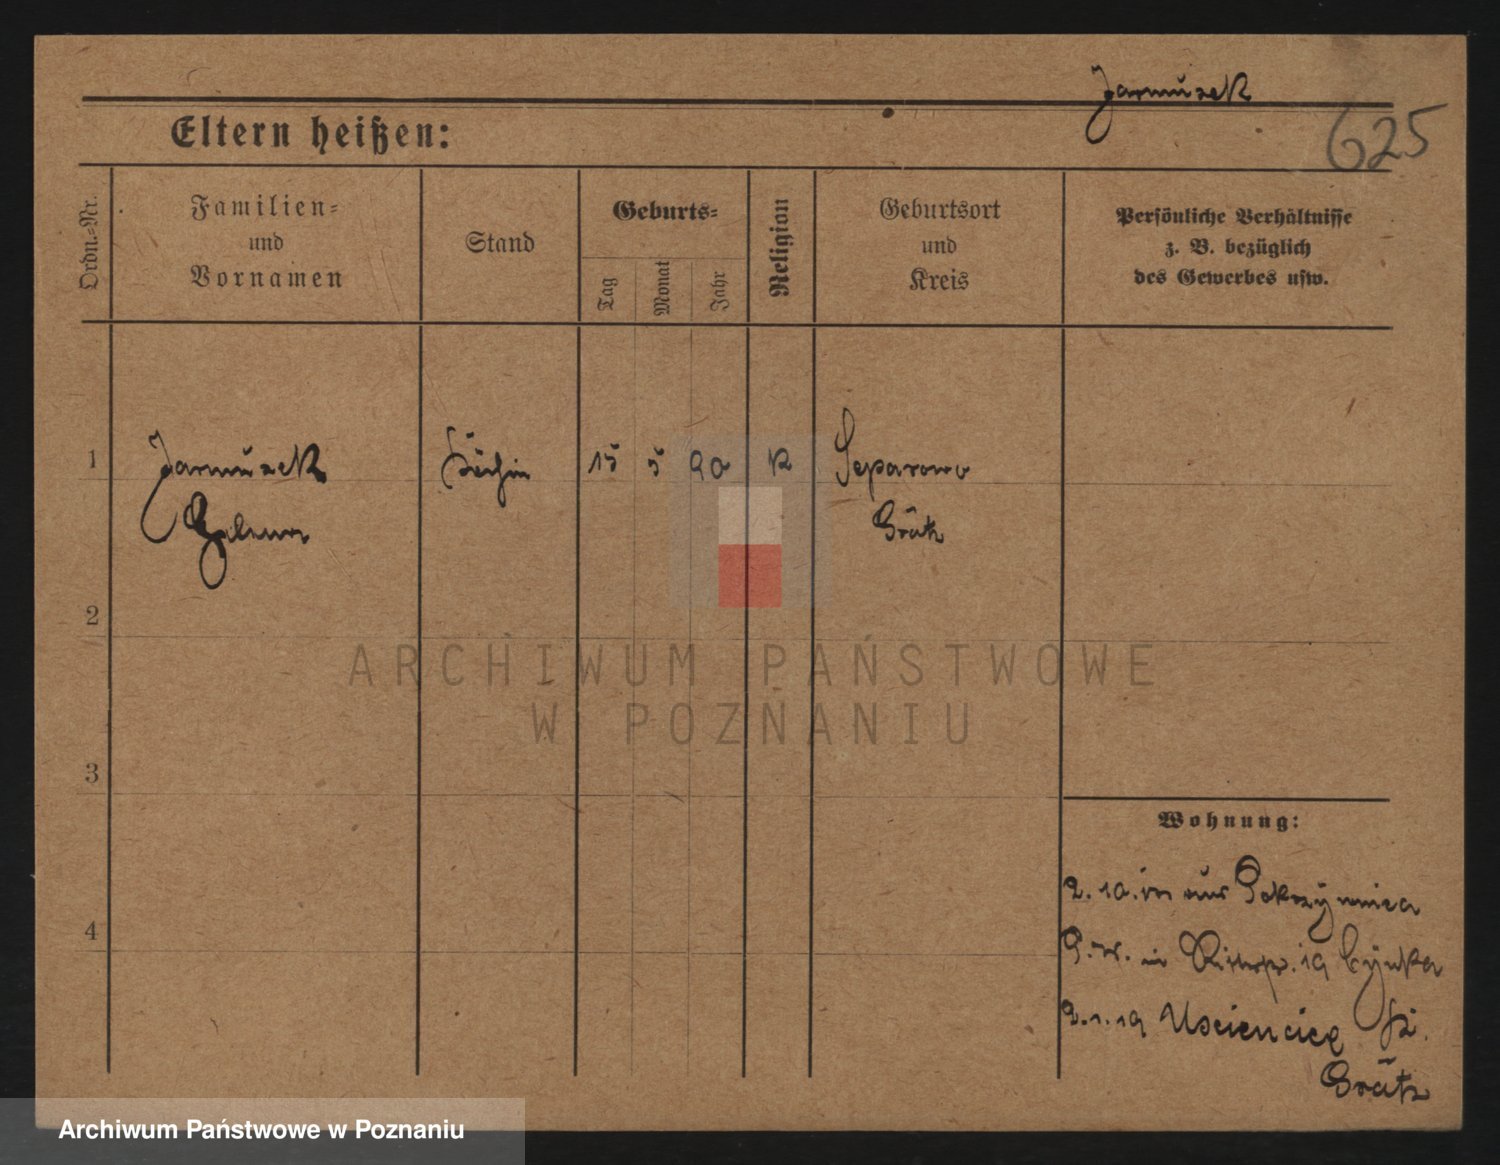 Jarmuzek
625
Eltern heißen:
Ordn.-Nr.
Familien-
und
Vornamen
Stand
Geburts-
Tag
Monat
Jahr
Religion
Geburtsort
und
Kreis
Persönliche Verhältnisse
z. B. bezüglich
des Gewerbes usw.
1
Jarmuzek
Köchin
15 5 90
K
Separowo
Grätz
2
3
4
Wohnung:
2.10. aus
in Ritterstr. 19
2.1.19 Uscięncice Kr.
Grätz
ARCHIWUM PAŃSTWOWE
W POZNANIU
Archiwum Państwowe w Poznaniu